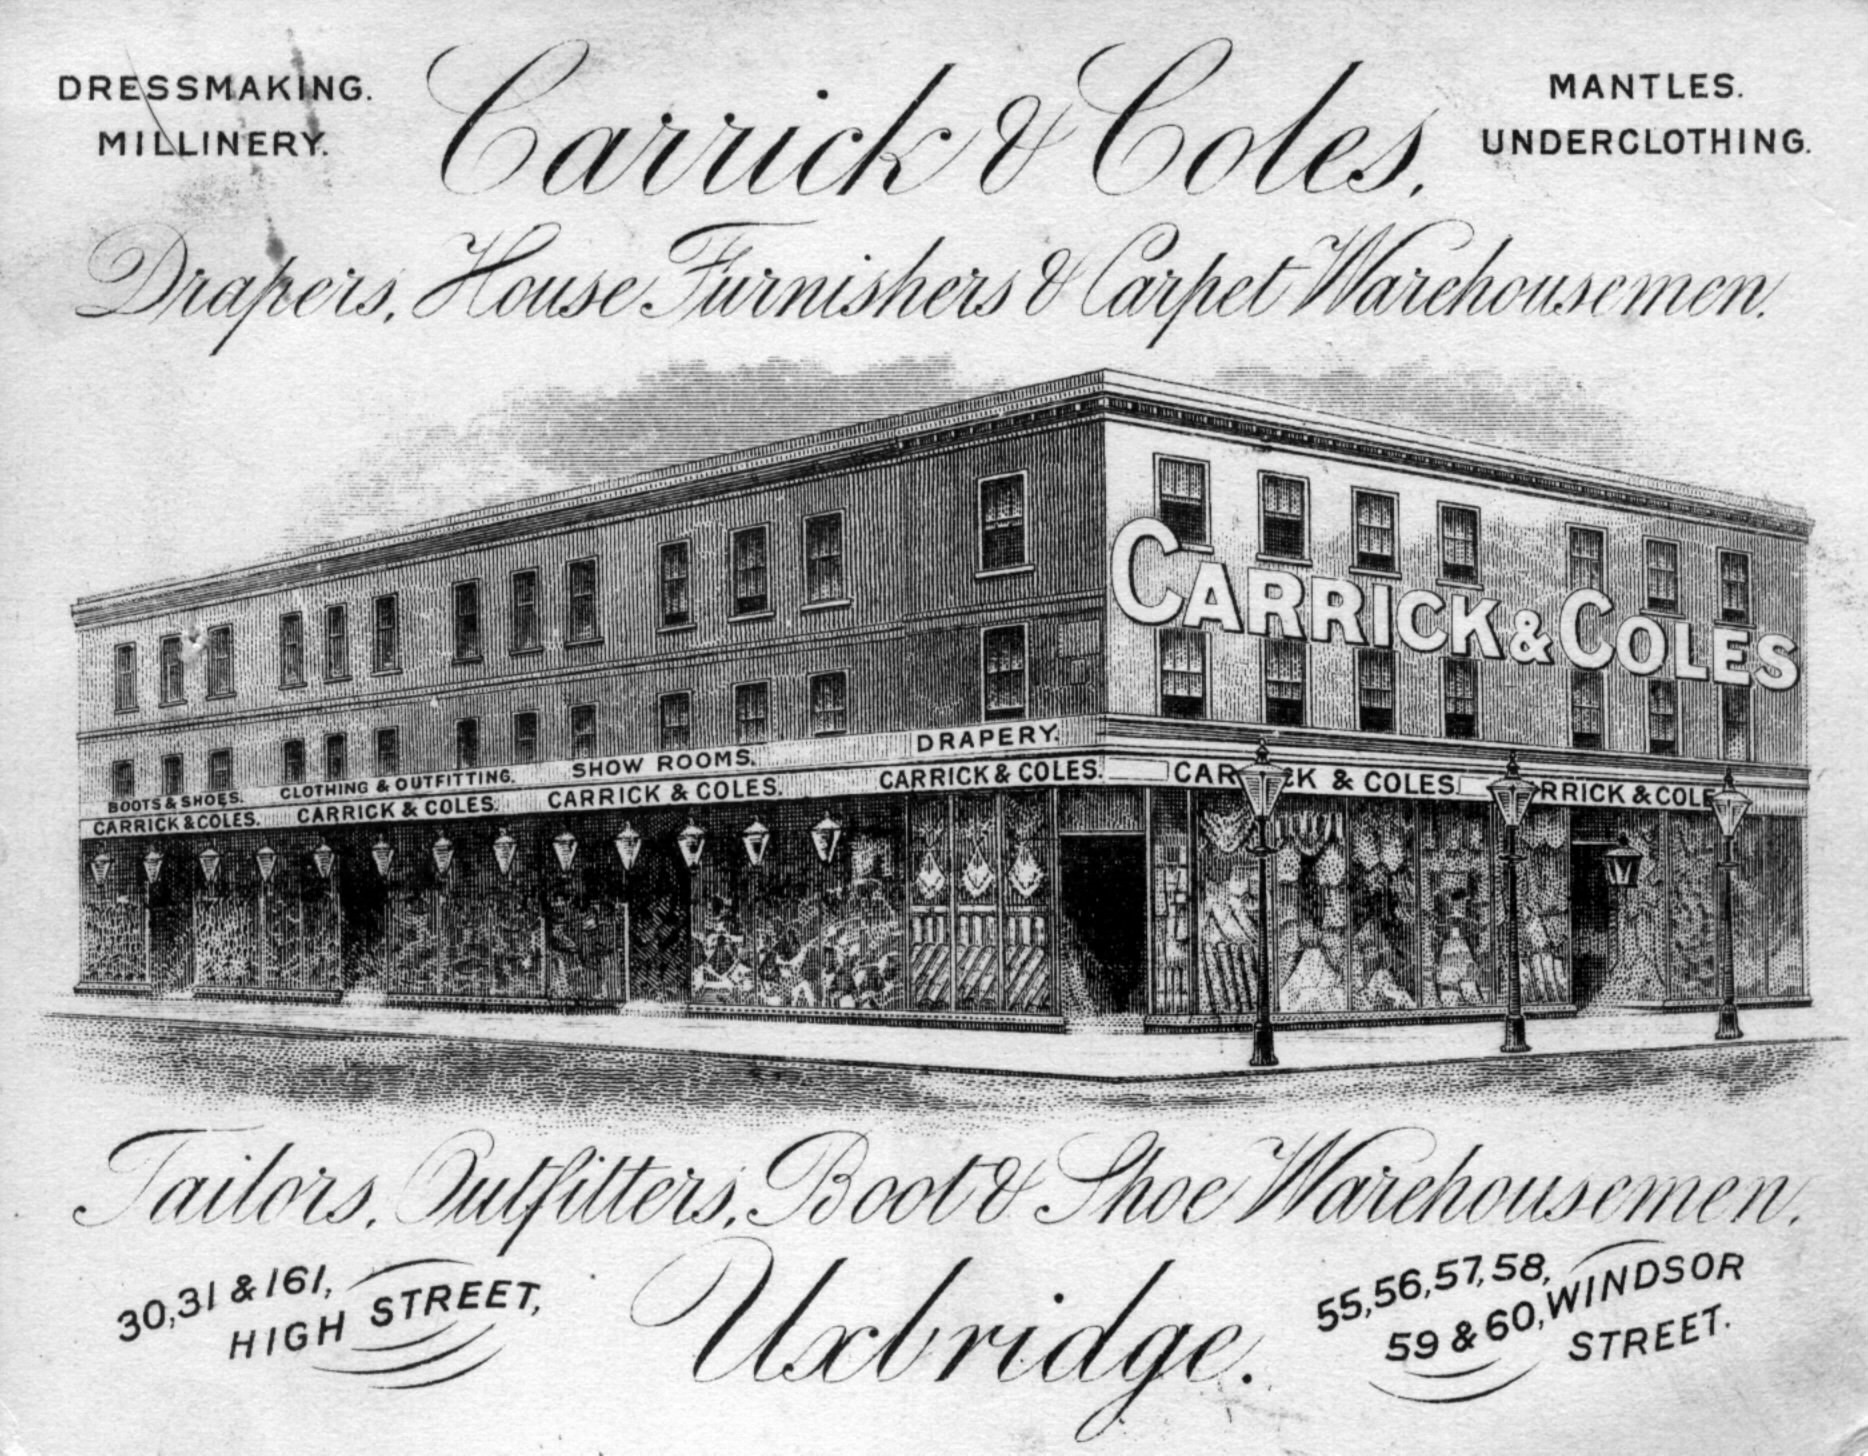 DRESSMAKING.
MILLINERY.
Carrick & Coles,
MANTLES.
UNDERCLOTHING.
Drapers, House Furnishers & Carpet Warehousemen.
CARRICK & COLES
DRAPERY.
SHOW ROOMS.
CLOTHING & OUTFITTING.
BOOTS & SHOES.
CARRICK & COLES.
CARRICK & COLES.
CARRICK & COLES.
CARRICK & COLES.
CAR CK & COLES.
RRICK & COLE
Tailors, Outfitters, Boot & Shoe Warehousemen,
30,31 & 161,
HIGH STREET,
Uxbridge.
55,56,57,58,
59 & 60, WINDSOR
STREET.